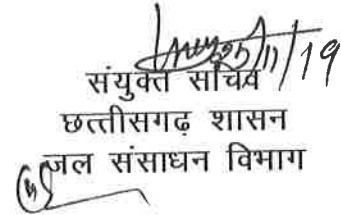 25/11/19
संयुक्त सचिव
छत्तीसगढ़ शासन
जल संसाधन विभाग